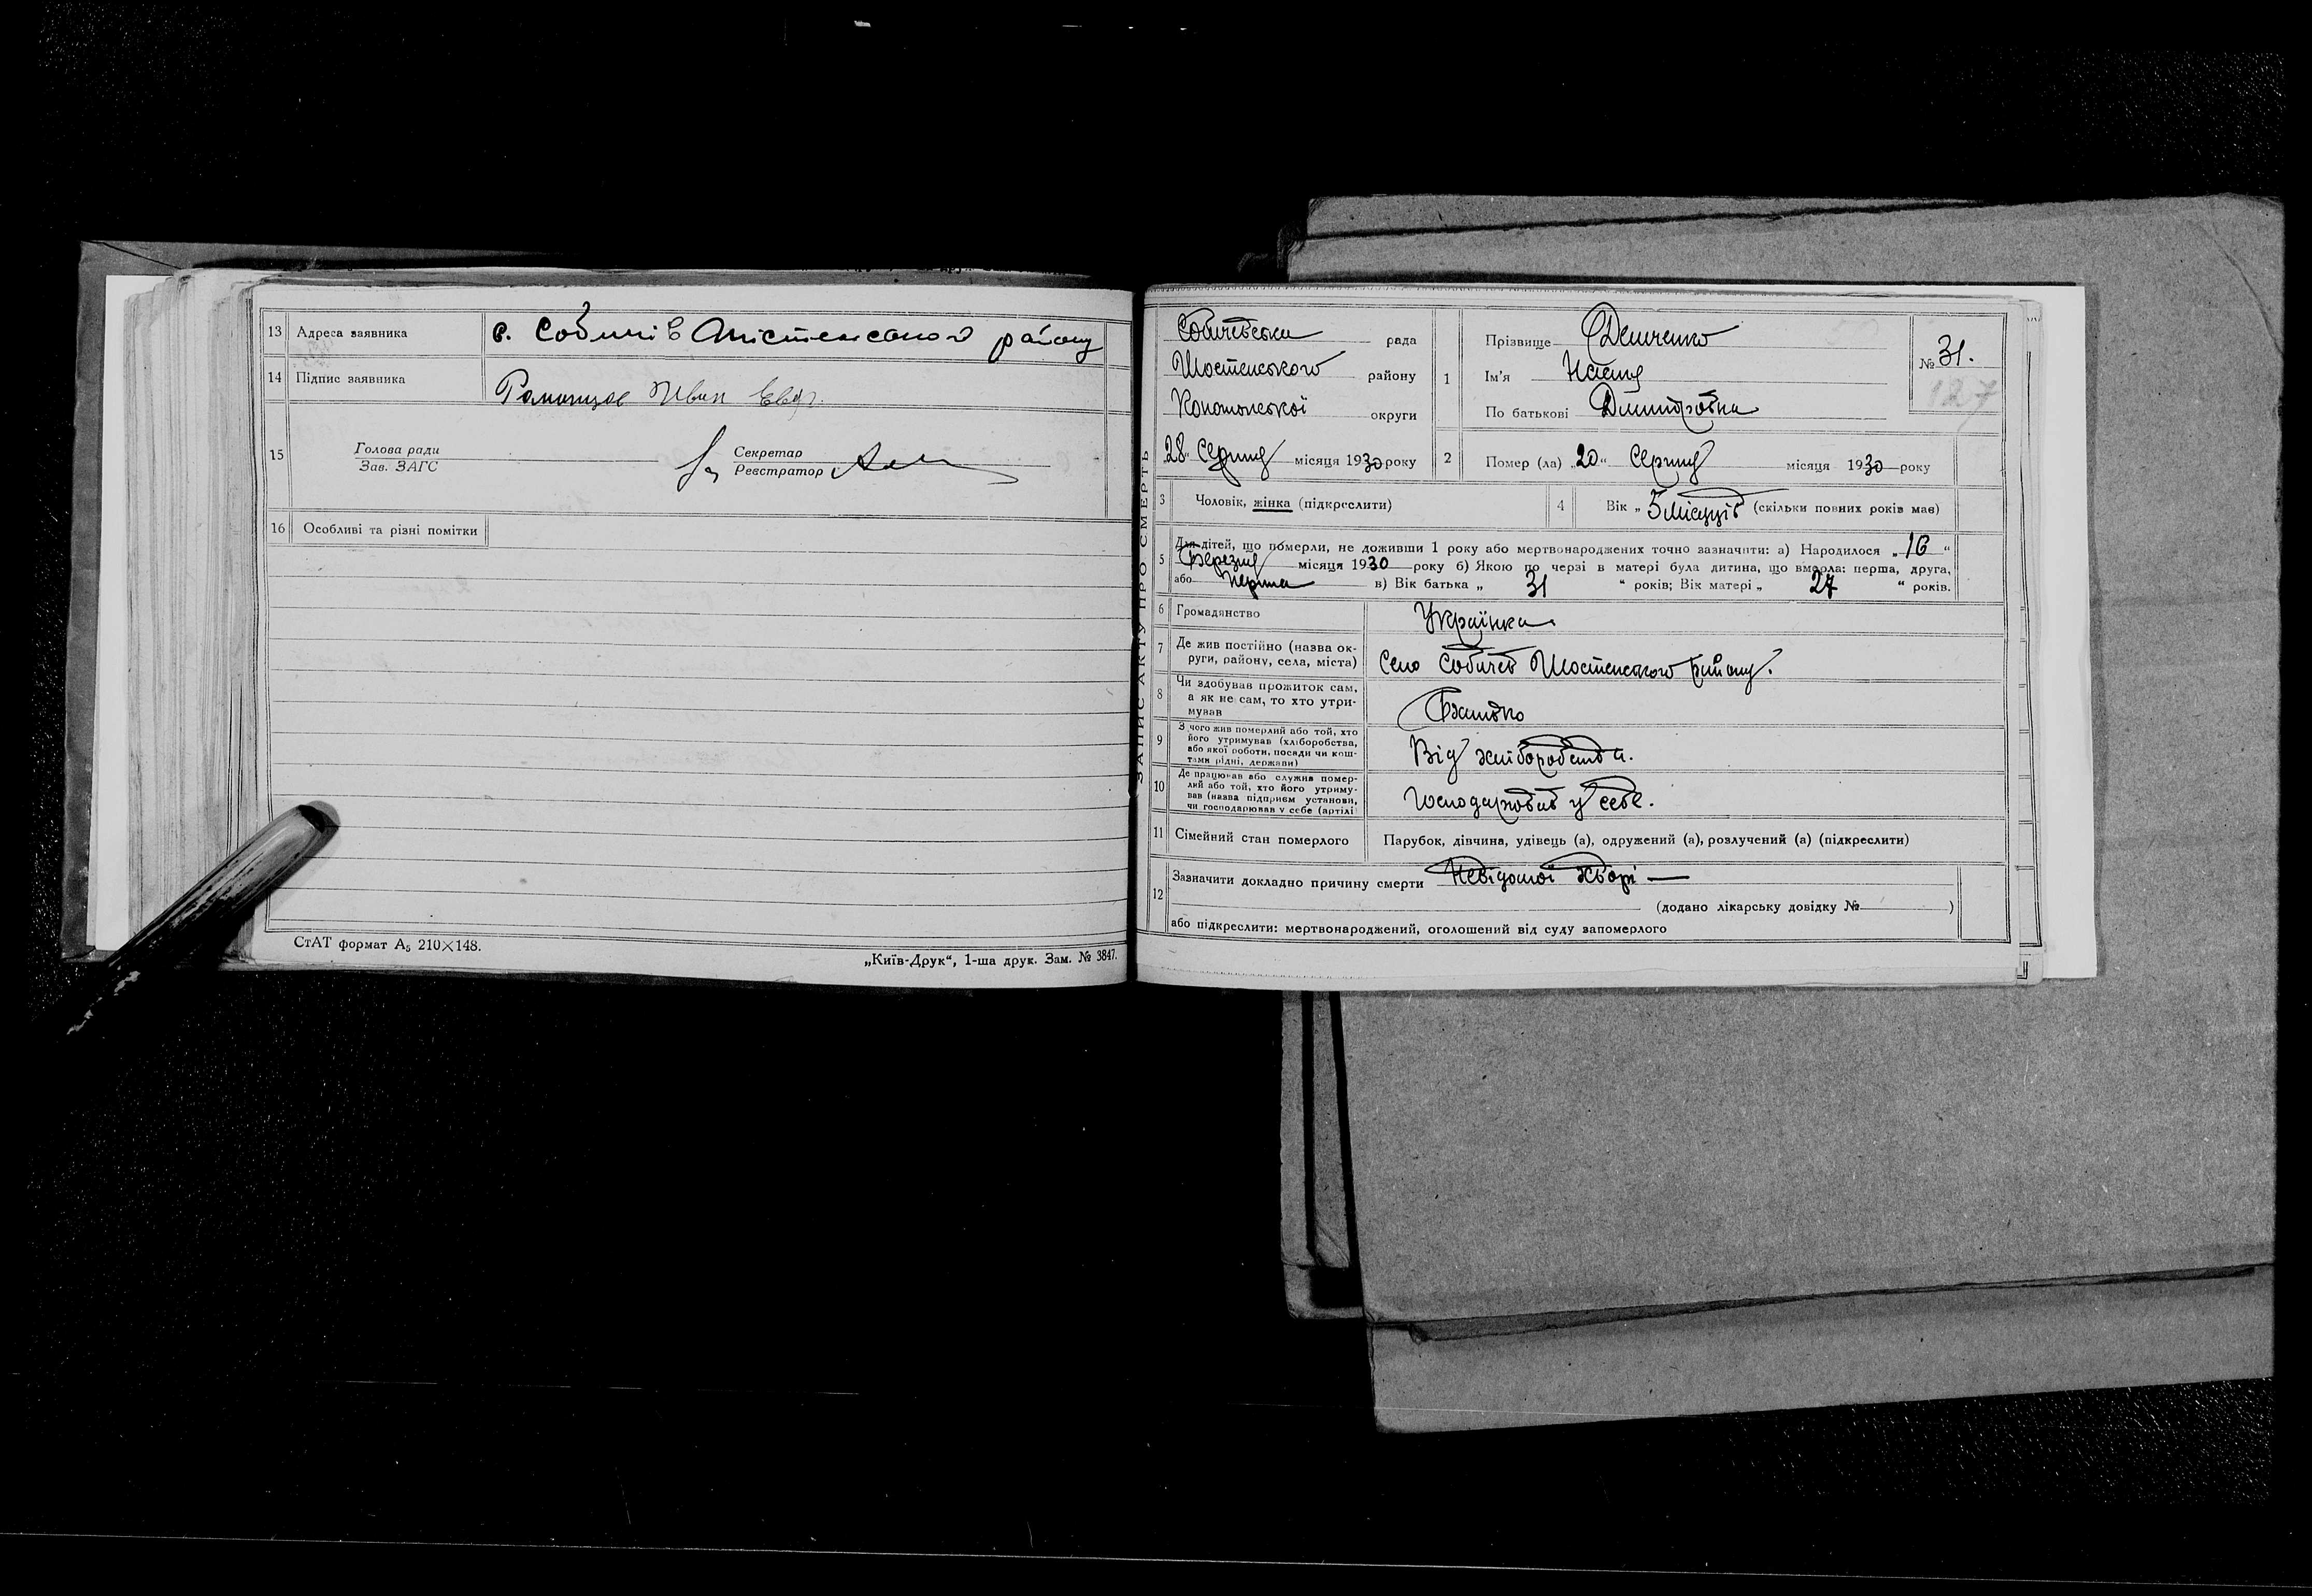 13 Адреса заявника с. Собичів Шостенського району
14 Підпис заявника Иван
15 Голова ради
Зав. ЗАГС
Секретар
Реєстратор
16 Особливі та різні помітки
СтАТ формат А5 210×148.
„Київ-Друк“, 1-ша друк. Зам. № 3847.
ЗАПИС АКТУ ПРО СМЕРТЬ
Собичевська рада
Шостенського району
Конотопської округи
28 Серпня місяця 1930 року
1 Прізвище Демченко
Ім'я Настя
По батькові Дмитровна
№ 31.
127
2 Помер (ла) „20“ Серпня місяця 1930 року
3 Чоловік, жінка (підкреслити)
4 Вік „ 5 місяців (скільки повних років мав)
5 Для дітей, що померли, не доживши 1 року або мертвонароджених точно зазначити: а) Народилося „16“
Березня місяця 1930 року б) Якою по черзі в матері була дитина, що вмерла: перша, друга,
або перша в) Вік батька „ 31 “ років; Вік матері „ 27 “ років.
6 Громадянство Українка
7 Де жив постійно (назва округи, району, села, міста) Село Собичев Шостенського району.
8 Чи здобував прожиток сам,
а як не сам, то хто утримував Батько
9 З чого жив померлий або той, хто
його утримував (хліборобства,
або якої роботи, посади чи коштами рідні, держави) Від хліборобства.
10 Де працював або служив померлий або той, хто його утримував (назва підприєм установи,
чи господарював у себе (артілі Господарював у себе.
11 Сімейний стан померлого Парубок, дівчина, удівець (а), одружений (а), розлучений (а) (підкреслити)
12 Зазначити докладно причину смерти Невідомої хворі —
(додано лікарську довідку № )
або підкреслити: мертвонароджений, оголошений від суду запомерлого